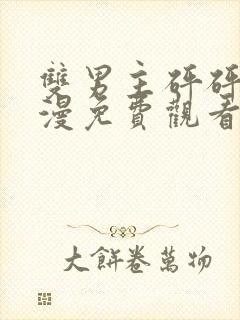 雙男主砰砰
漫免費觀看
大餅卷萬物